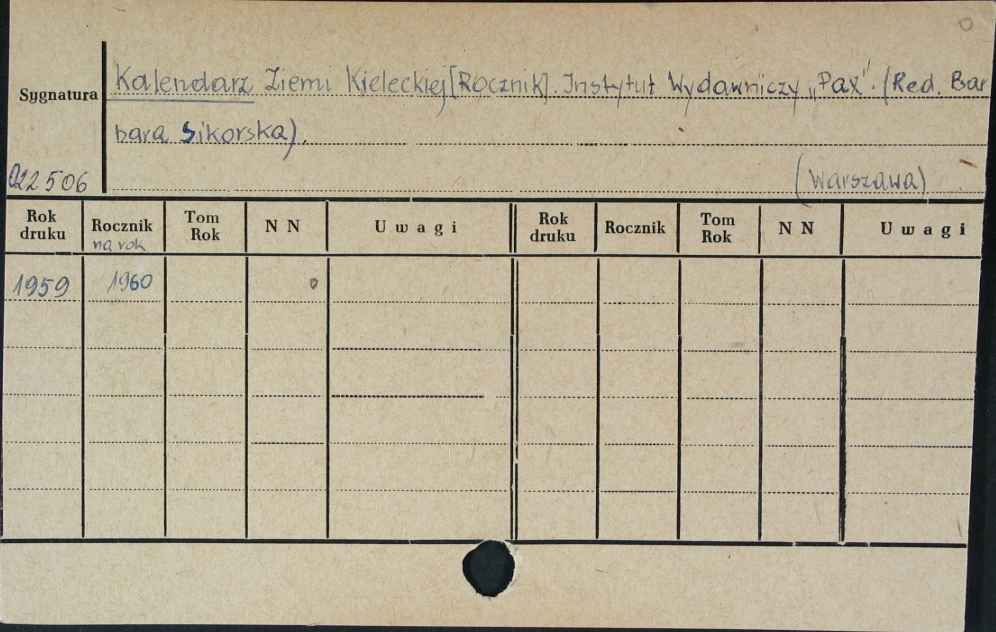 Kalendarz Ziemi Kieleckiej [Rocznik]. Instytut Wydawniczy „Pax". (Red. Bar
Sygnatura
bara Sikorska).
022506
(Warszawa)
Rok druku Rocznik na rok Tom Rok N N Uwagi Rok druku Rocznik Tom Rok N N Uwagi
1959 1960